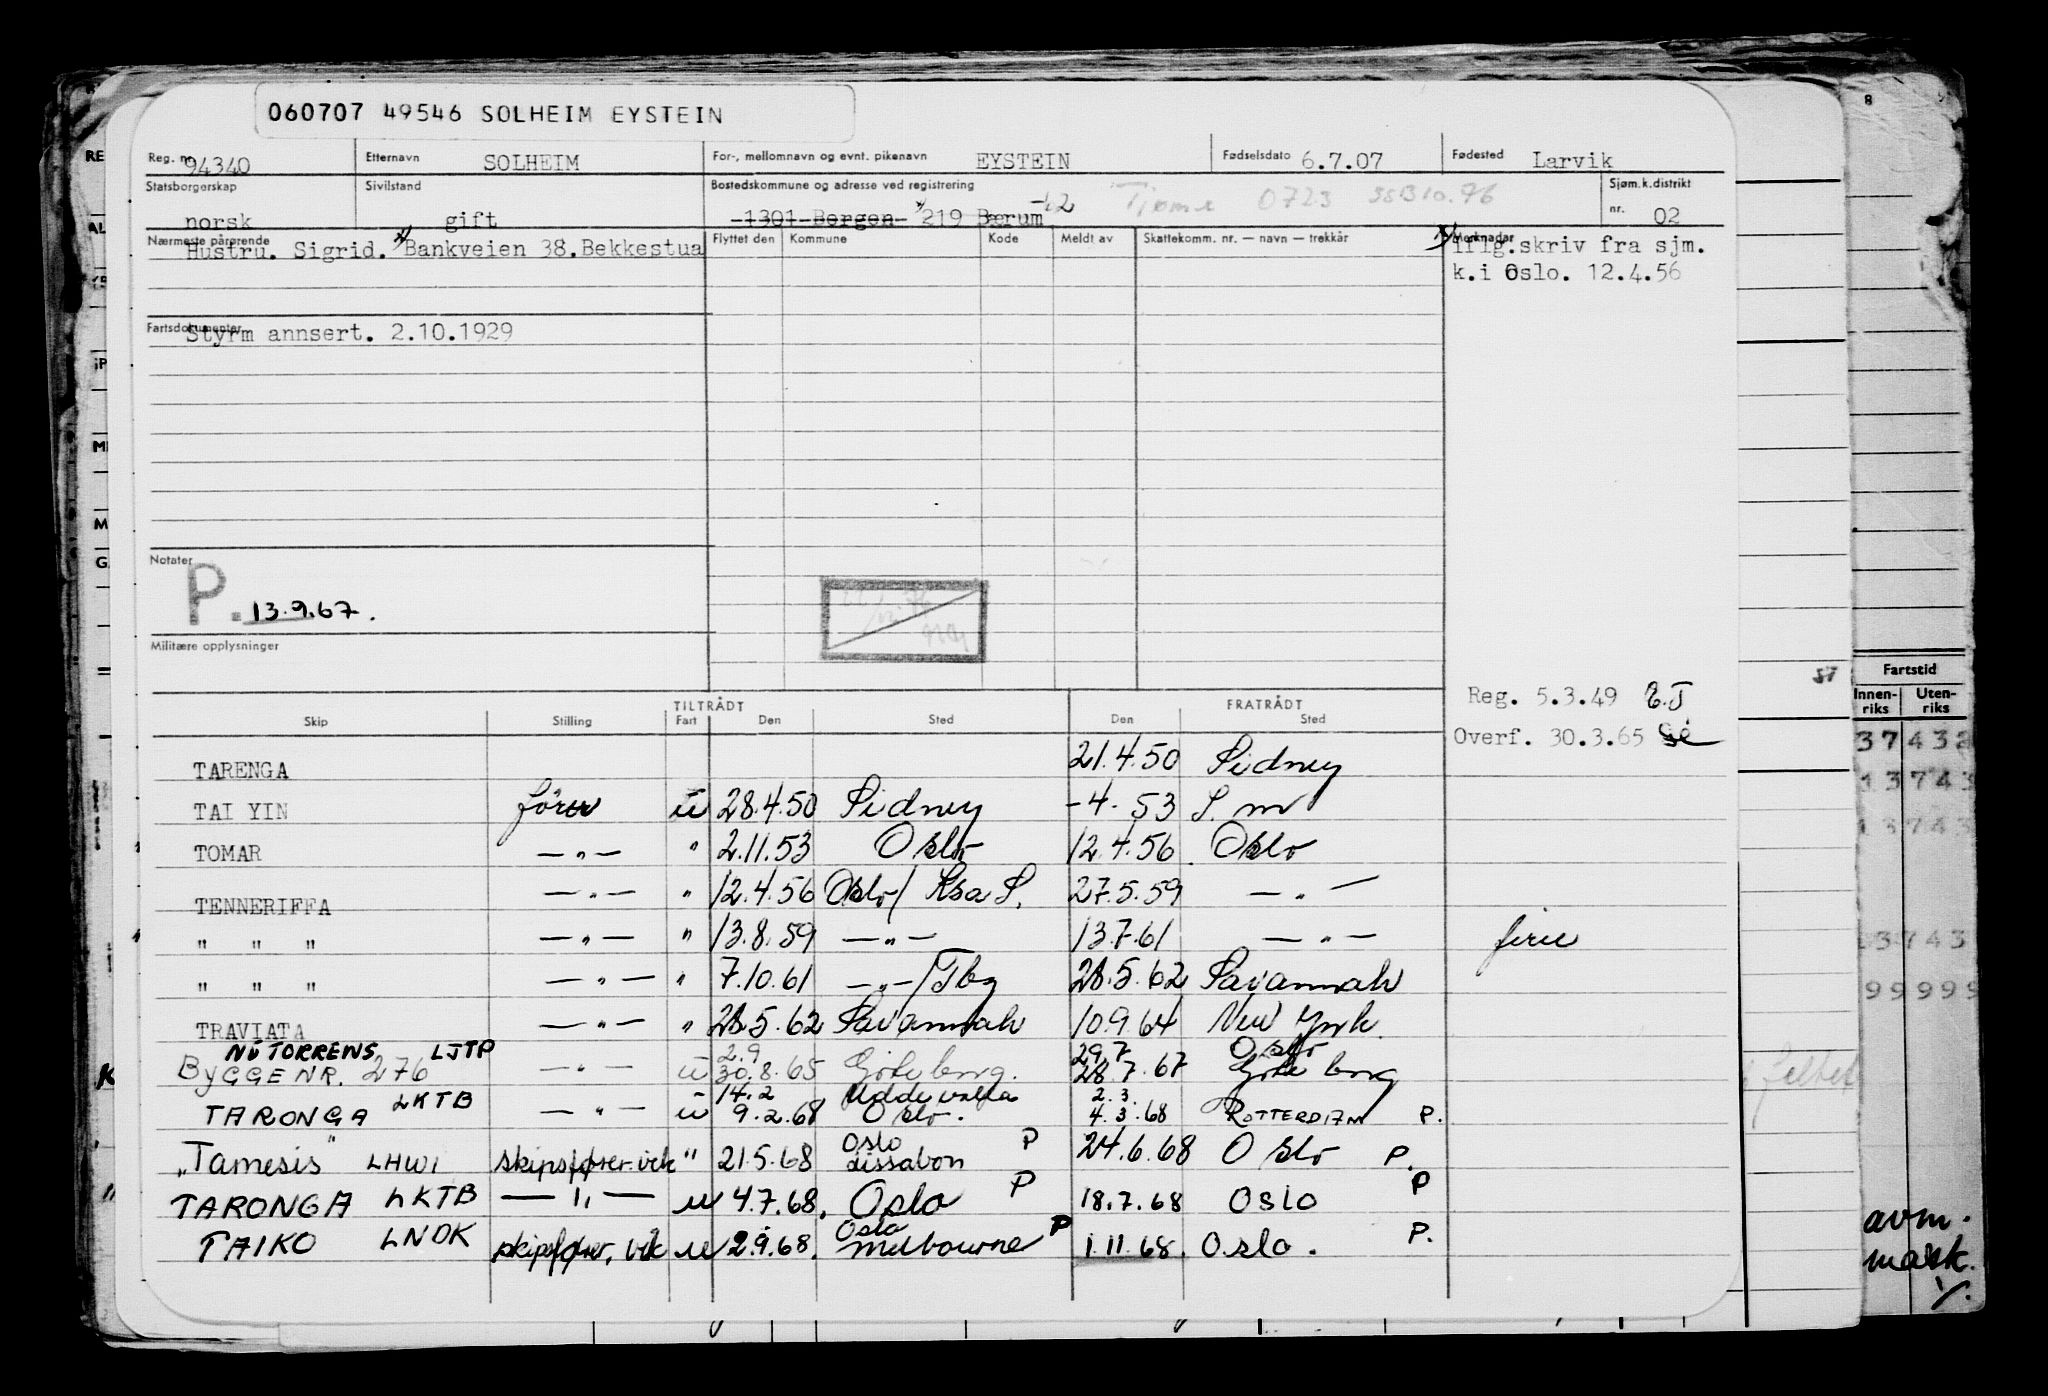 060707 49546 SOLHEIM EYSTEIN
Reg. nr. 94340 Etternavn SOLHEIM For-, mellomnavn og evnt. pikenavn EYSTEIN Fødselsdato 6.7.07 Fødested Larvik
Statsborgerskap norsk Sivilstand gift Bostedskommune og adresse ved registrering 1301 Bergen x) 219 Bærum Tjøme 0723 Sjøm.k.distrikt nr. 02
Nærmeste pårørende Hustru. Sigrid. x) Bankveien 38. Bekkestua
Flyttet den Kommune Kode Meldt av Skattekomm. nr. — navn — trekkår
Merknader x) iflg.skriv fra sjm.
k.i Oslo. 12.4.56
Fartsdokumenter Styrm annsert. 2.10.1929
Notater
P. 13.9.67.
Militære opplysninger
Reg. 5.3.49
Overf. 30.3.65
TILTRÅDT FRATRÅDT
Skip Stilling Fart Den Sted Den Sted
TARENGA 21.4.50 Sidney
TAI YIN fører u 28.4.50 Sidney -4. 53 S. m
TOMAR — " — " 2.11.53 Oslo 12.4.56. Oslo
TENNERIFFA — " — " 12.4.56 Oslo/ Ksa S. 27.5.59 — " —
" " " — " — " 13.8.59 — " — 13.7.61 — " — ferie
" " " — " — " 7.10.61 — " — /Tbg 28.5.62 Savannah
TRAVIATA — " — " 28.5.62 Savannah 10.9.64 New York
NÅ TORRENS LJTP 2.9 29.7 Oslo
BYGGE NR. 276 — " — u 30.8.65 Göteborg. 28.7.67 Göteborg
14.2 Uddevalla 2.3.
TARONGA LKTB — " — u 9.2.68 Oslo. 4.3.68 ROTTERDAM P.
Oslo P
"Tamesis" LHWI skipsfører vik " 21.5.68 Lissabon 24.6.68 Oslo P.
TARONGA LKTB — " — u 4.7.68. Oslo P 18.7.68 Oslo P
Oslo P
TAIKO LNDK skipsfører, vik u 2.9.68. Melbourne 1.11.68. Oslo. P.
Fartstid
Innen-riks Uten-riks
37 432
13 743
13 743
13 743
99 999
avm.
mask.